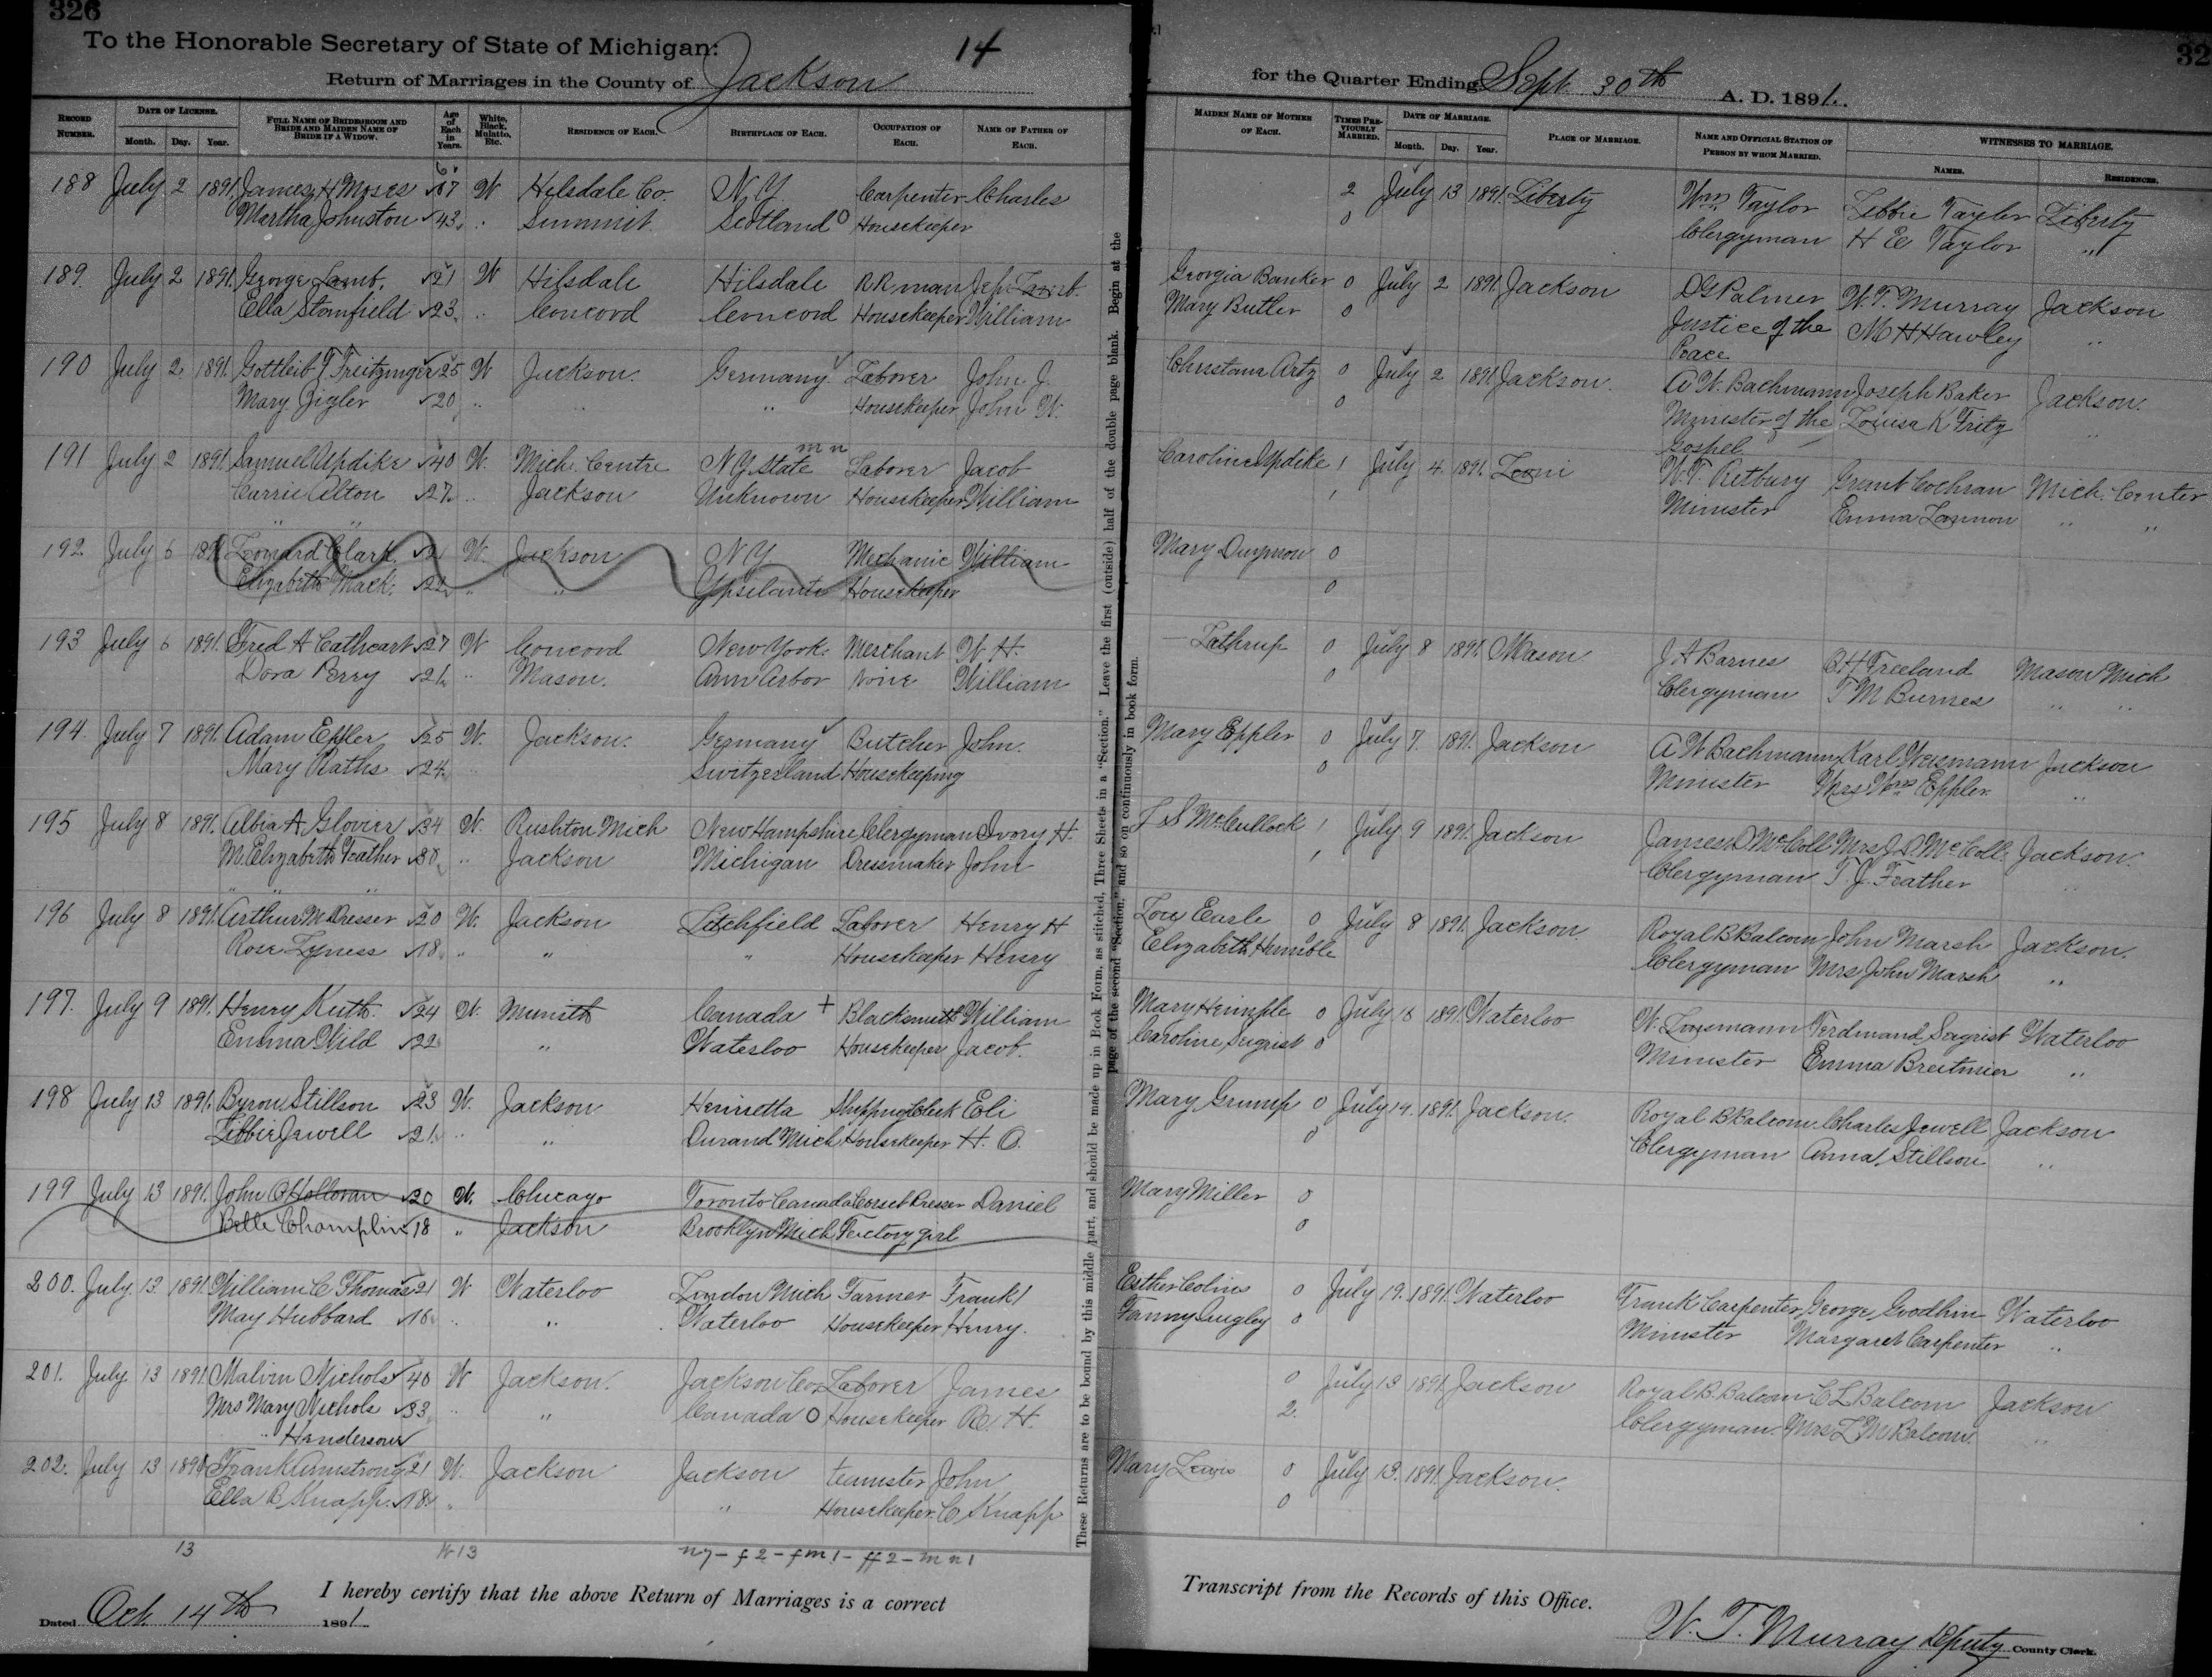 326
To the Honorable Secretary of State of Michigan:
14
Return of Marriages in the County of Jackson
RECORD NUMBER. DATE OF LICENSE. Month. Day. Year. FULL NAME OF BRIDEGROOM AND BRIDE AND MAIDEN NAME OF BRIDE IF A WIDOW. Age of Each in Years. White, Black, Mulatto, Etc. RESIDENCE OF EACH. BIRTHPLACE OF EACH. OCCUPATION OF EACH. NAME OF FATHER OF EACH.
188 July 2 1891. James H Moses 67 W Hilsdale Co. N.Y. Carpenter Charles
Martha Johnston 43 " Summit Scotland O Housekeeper
189. July 2 1891. George Lamb. 21 W Hilsdale Hilsdale R R man Jep. Lamb.
Ella Stomfield 23 " Concord Concord Housekeeper William
190 July 2 1891. Gottleib F Freitzinger 25 W Jackson. Germany Laborer John J.
Mary Zigler 20 " " " Housekeeper John W.
191 July 2 1891. Samuel Updike 40 W. Mich. Centre N.Y. State m n Laborer Jacob
Carrie Alton 27 " Jackson Unknown Housekeeper William
" "
192 July 6 1891 Leonard Clark W. Jackson N.Y. Mechanic William
Elizabeth Mack. 22 " " Ypsilanti Housekeeper
193 July 6 1891. Fred A Cathcart 27 W Concord New York. Merchant W. H.
Dora Perry 21 " Mason. Ann Arbor None William
194. July 7 1891. Adam Epller 25 W. Jackson. Germany Butcher John.
Mary Raths 24 " Switzerland Housekeeping
195 July 8 1891. Albia A. Glovier 34 W. Rushton Mich New Hampshire Clergyman Ivory H.
M. Elizabeth Feather 30 " Jackson Michigan Dressmaker John
" " "
196 July 8 1891. Arthur M. Dresser 20 W. Jackson Litchfield Laborer Henry H
Rose Lyness 18 " " " Housekeeper Henry
197. July 9 1891. Henry Keith. 24 W. Munith Canada + Blacksmith William
Emma Wild 22 " Waterloo Housekeeper Jacob.
198 July 13 1891. Byron Stillson 23 W. Jackson Henrietta Shipping Clerk Eli
Libbie Jewell 21 " " Durand Mich Housekeeper H. O.
199 July 13 1891. John O'Holloran 20 W. Chicago Toronto Canada Corset Presser Daniel
Belle Champlin 18 " Jackson Brooklyn Mich Factory girl
200. July. 13 1891. William C Thomas 21 W Waterloo London Mich Farmer Frank
May Hubbard 18 " " Waterloo Housekeeper Henry.
201. July 13 1891. Malvin Nichols 40 W Jackson. Jackson Co. Laborer James
Mrs Mary Nichols 33 " " Canada O Housekeeper R. H.
" Henderson
202. July 13 1891 Frank Armstrong 21 W. Jackson Jackson teamster John
Ella B Knapp. 18 " " Housekeeper. C Knapp
13 W 13 n 7 - f 2 - f m 1 - f f 2 - m n 1
I hereby certify that the above Return of Marriages is a correct
Dated Oct. 14th 1891.
These Returns are to be bound by this middle part, and should be made up in Book Form, as stitched, Three Sheets in a "Section." Leave the first (outside) half of the double page blank. Begin at the
page of the second "Section," and so on continuously in book form.
32
for the Quarter Ending Sept 30th A. D. 1891.
MAIDEN NAME OF MOTHER OF EACH. TIMES PREVIOUSLY MARRIED. DATE OF MARRIAGE. Month. Day. Year. PLACE OF MARRIAGE. NAME AND OFFICIAL STATION OF PERSON BY WHOM MARRIED. WITNESSES TO MARRIAGE. NAMES. RESIDENCES.
2 July 13 1891. Liberty Wm. Taylor Libbie Taylor Liberty
0 Clergyman H E Taylor "
Georgia Banker 0 July 2 1891. Jackson D G Palmer W. T. Murray Jackson
Mary Butler 0 Justice of the M H Hawley "
Peace
Christana Artz 0 July 2 1891 Jackson. A. W. Bachmann Joseph Baker Jackson.
0 Minister of the Louisa K Fritz "
Gospel
Caroline Updike 1 July 4 1891. Leoni W. T. Grant Cochran Mich. Center
1 Minister Emma " "
Mary 0
0
Lathrup 0 July 8 1891. Mason J. A Barnes O. H Freeland Mason Mich
0 Clergyman T M Burnes " "
Mary Eppler 0 July 7. 1891. Jackson A W Bachmann Karl Weismann Jackson
0 Minister Mrs Wm Eppler. "
S McCullock 1 July 9 1891. Jackson James D McColl Mrs J. D. McColl. Jackson.
1 Clergyman T. J. Feather "
Lou Earle 0 July 8 1891. Jackson. Royal B Balcom John Marsh Jackson.
Elizabeth Humble Clergyman Mrs John Marsh "
Mary Heimple 0 July 18 1891. Waterloo W. Ferdinand Seigrist Waterloo
Caroline Seigrist 0 Minister Emma Breitmier "
Mary Grump 0 July 14. 1891. Jackson. Royal B Balcom. Charles Jewell Jackson
0 Clergyman Anna Stillson "
Mary Miller 0
0
Esther Colins 0 July 19. 1891. Waterloo Frank Carpenter George Goodhin Waterloo
Fanny Quigley 0 Minister Margaret Carpenter "
0 July 13 1891. Jackson Royal B. Balcom C L Balcom Jackson
2. Clergyman. Mrs L M Balcom. "
Mary Lewis 0 July 13. 1891. Jackson.
0
Transcript from the Records of this Office.
W. T. Murray Deputy County Clerk.